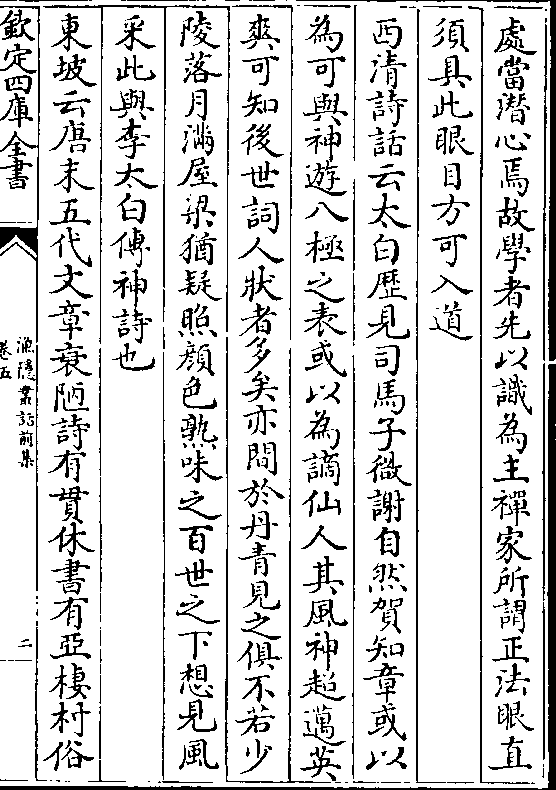 處當潛心焉故學者先以識為主禪家所謂正法眼直
須具此眼目方可入道
西清詩話云太白歴見司馬子微謝自然賀知章或以
為可與神遊八極之表或以為謫仙人其風神超邁英
爽可知後世詞人狀者多矣亦間於丹青見之俱不若少
陵落月滿屋梁猶疑照顔色熟味之百世之下想見風
采此與李太白傳神詩也
東坡云唐末五代文章衰陋詩有貫休書有亞棲村俗
欽定四庫全書
漁隱叢話前集
卷五
二